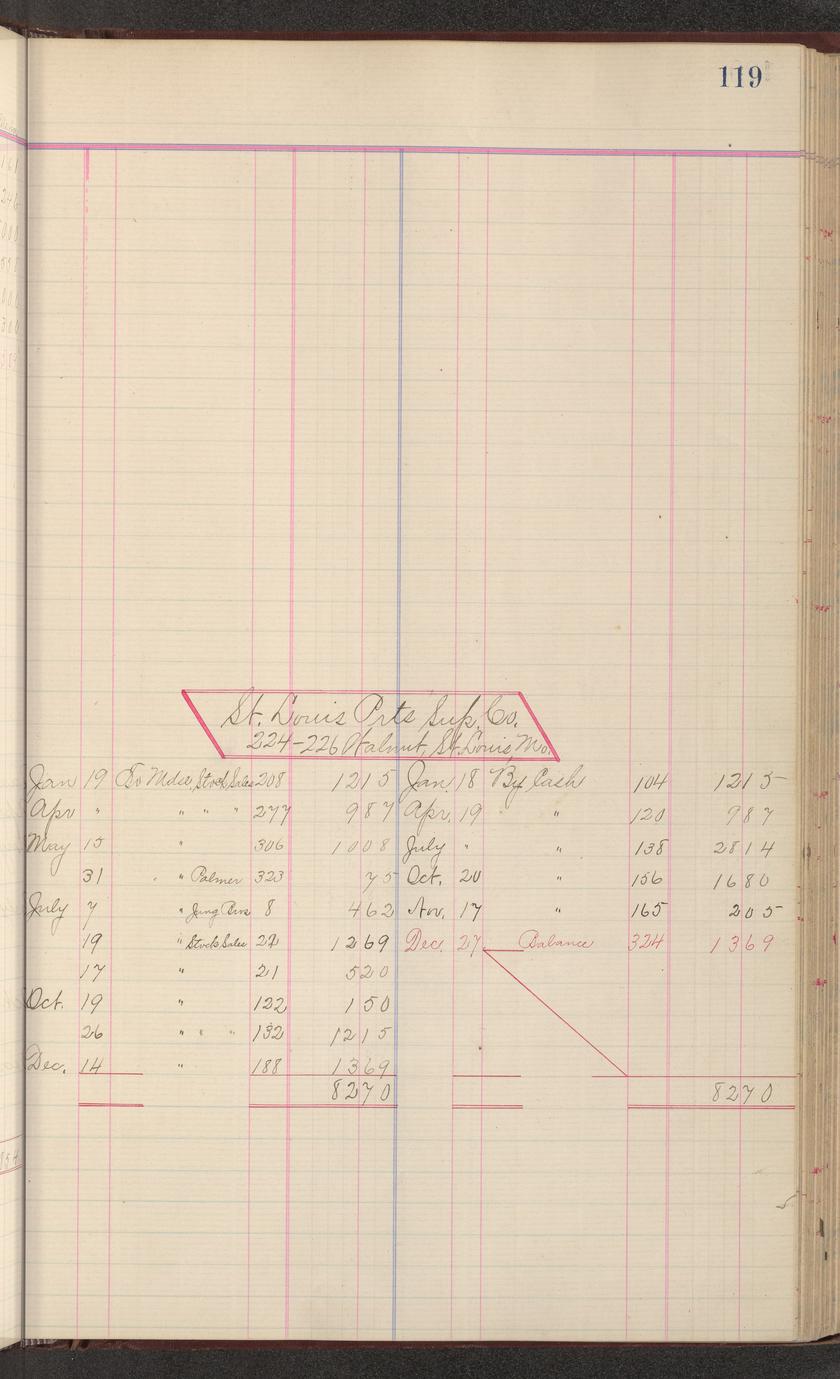 119
St. Louis Prts Sup. Co.
224-226 Walnut, St. Louis Mo.
Jan 19 To Mdse, Stock Sales 208 1215 Jan 18 By Cash 104 1215
Apr " " " " 277 987 Apr. 19 " 120 987
May 15 " 306 1008 July " " 138 2814
31 " " Palmer 323 75 Oct. 20 " 156 1680
July 7 " 8 462 Nov. 17 " 165 205
19 " Stock Sales 22 1269 Dec. 27 Balance 324 1369
17 " 21 520
Oct. 19 " 122 150
26 " " " 132 1215
Dec. 14 " 188 1369
8270 8270